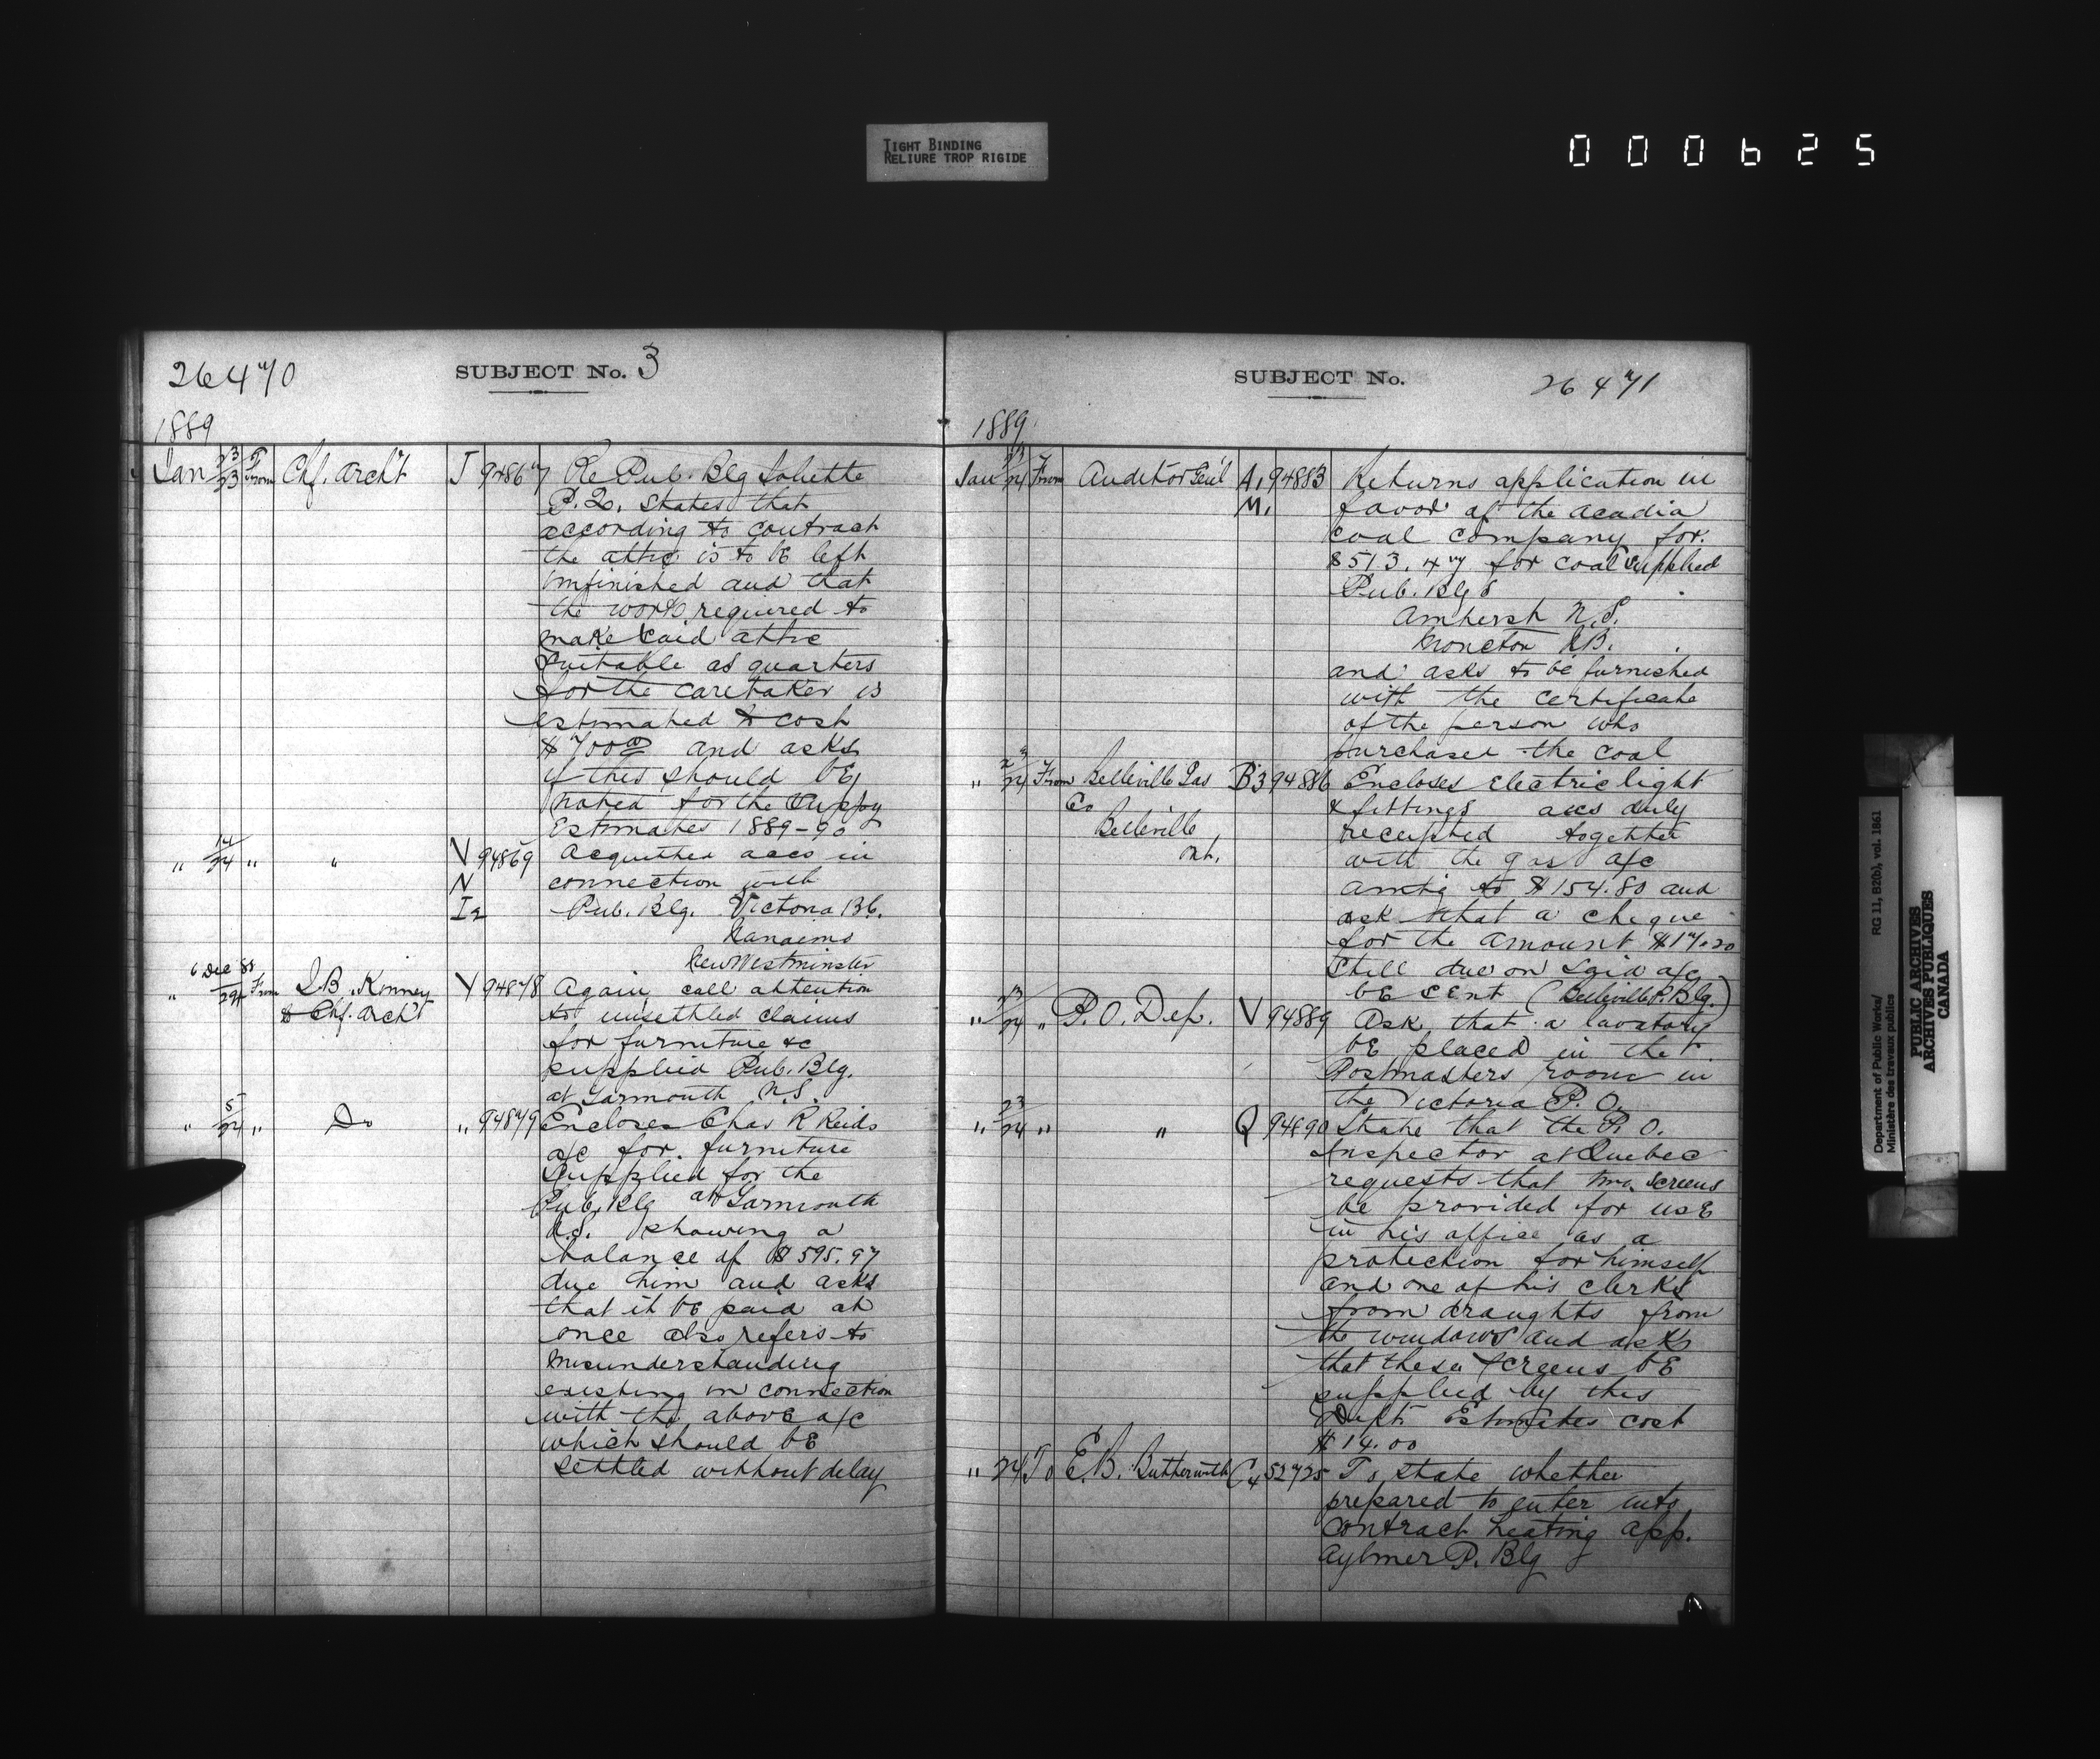 TIGHT BINDING
RELIURE TROP RIGIDE
000625
26470
SUBJECT No. 3
1889
Jan 23/23 From Chf. Archt J 94867 Re Pub. Blg Joliette
P.Q. States that
according to contract
the attic is to be left
unfinished and that
the work required to
make said attic
suitable as quarters
for the caretaker is
estimated to cost
$700.00 and asks
if this should be
noted for the Suppy
Estimates 1889-90
" 14/24 " " V 94869 Acquitted accs in
N connection with
I2 Pub. Blg. Victoria B.C.
Nanaimo
New Westminster
6 Dec 88
" /24 From J.B. Kinney Y 94878 Again call attention
to Chf. Archt to unsettled claims
for furniture &c
supplied Pub. Blg.
at Yarmouth N.S.
" 5/24 " Do " 94879 Encloses Chas R Reids
a/c for furniture
supplied for the
Pub. Blg at Yarmouth
N.S. showing a
balance of $595.97
due him and asks
that it be paid at
once also refers to
misunderstanding
existing in connection
with the above a/c
which should be
settled without delay
SUBJECT No.
26471
1889
Jan 23/24 From Auditor Genl A1 94883 Returns application in
M1 favor of the Acadia
Coal Company for
$513.47 for coal supplied
Pub. Blgs
Amherst N.S.
Moncton N.B.
and asks to be furnished
with the certificate
of the person who
purchased the coal
" 23/24 From Belleville Gas B3 94886 Encloses electric light
Co & fittings accs duly
Belleville receipted together
Ont. with the gas a/c
amtg to $154.80 and
ask that a cheque
for the amount $17.20
still due on said a/c
be sent (Belleville P. Blg.)
" 23/24 " P.O. Dep. V 94889 Ask that a lavatory
be placed in the
Postmasters room in
the Victoria P.O.
" 23/24 " " Q 94890 State that the P.O.
Inspector at Quebec
requests that two screens
be provided for use
in his office as a
protection for himself
and one of his clerks
from draughts from
the windows and asks
that these screens be
supplied by this
Dept. Estimates cost
$14.00
" 24 To E.B. Butterworth C4 52725 To state whether
prepared to enter into
contract heating app.
Aylmer P. Blg
Department of Public Works/ RG 11, B2(b), vol. 1861
Ministère des travaux publics
PUBLIC ARCHIVES
ARCHIVES PUBLIQUES
CANADA